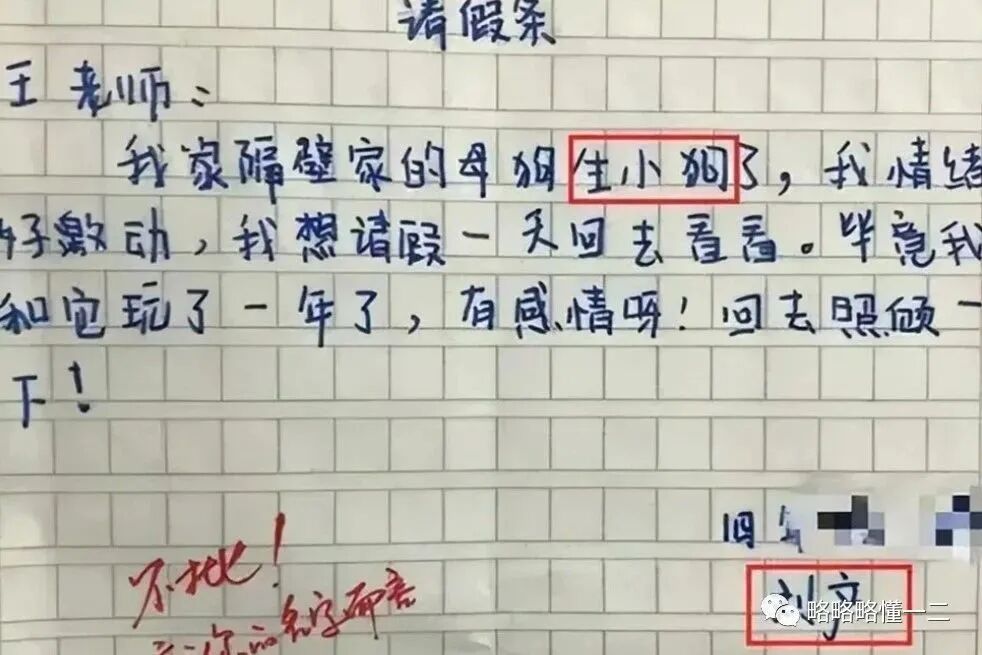 请假条
王老师：
我家隔壁家的母狗生小狗了，我情绪
好激动，我想请假一天回去看看。毕竟我
和它玩了一年了，有感情呀！回去照顾一
下！
四年
不批！
你的名字
刘产
略略略懂一二